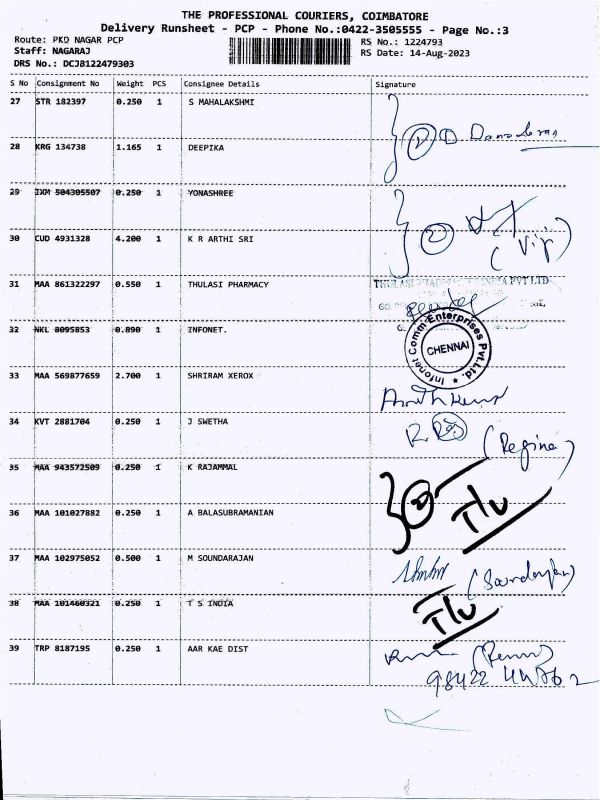 THE PROFESSIONAL COURIERS, COIMBATORE
Delivery Runsheet - PCP - Phone No.:0422-3505555 - Page No.:3
Route: PKD NAGAR PCP RS No.: 1224793
Staff: NAGARAJ RS Date: 14-Aug-2023
DRS No.: DCJB122479303
S No Consignment No Weight PCS Consignee Details Signature
27 STR 182397 0.250 1 S MAHALAKSHMI
28 KRG 134738 1.165 1 DEEPIKA
29 IXM 504305507 0.250 1 YONASHREE
30 CUD 4931328 4.200 1 K R ARTHI SRI
(Vip)
31 MAA 861322297 0.550 1 THULASI PHARMACY
32 NKL 8095853 0.890 1 INFONET.
Infonet Comm Enterprises Pvt. Ltd.
CHENNAI
33 MAA 569877659 2.700 1 SHRIRAM XEROX
34 KVT 2881704 0.250 1 J SWETHA
(Regina)
35 MAA 943572509 0.250 1 K RAJAMMAL
36 MAA 101027882 0.250 1 A BALASUBRAMANIAN
37 MAA 102975052 0.500 1 M SOUNDARAJAN
38 MAA 101460321 0.250 1 T S INDIA
39 TRP 8187195 0.250 1 AAR KAE DIST